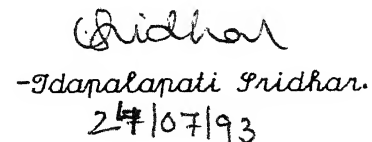 Sridhar
-Idapalapati Sridhar.
27/07/93